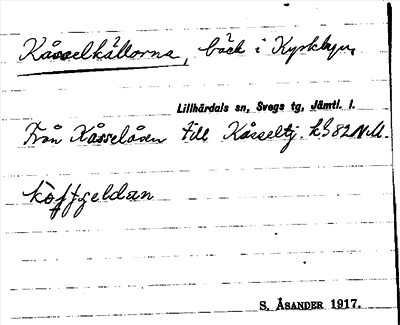 Kåsselkällorna, bäck i Kyrkbyn,
Lillhärdals sn, Svegs tg, Jämtl. l.
Från Kåsselåsen till Kåsseltj. kb 82 NV.
S. ÅSANDER 1917.